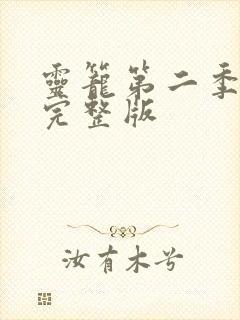 靈籠第二季
完整版
汝有木兮